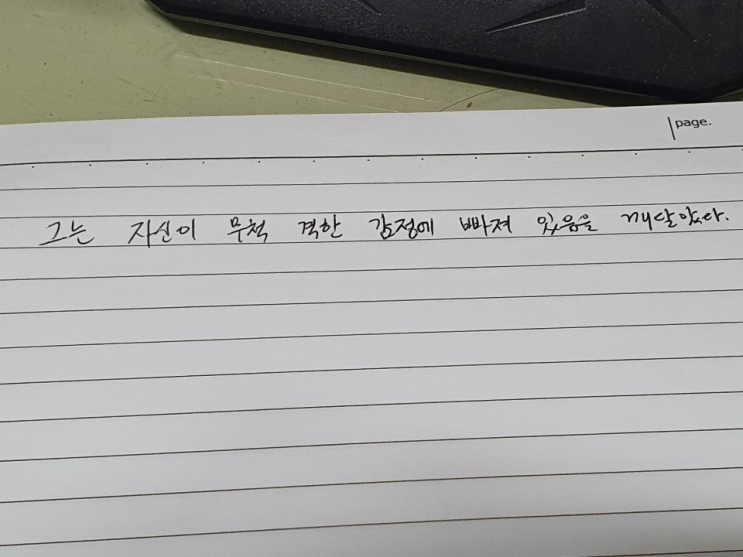 page.
그는 자신이 무척 격한 감정에 빠져 있음을 깨달았다.